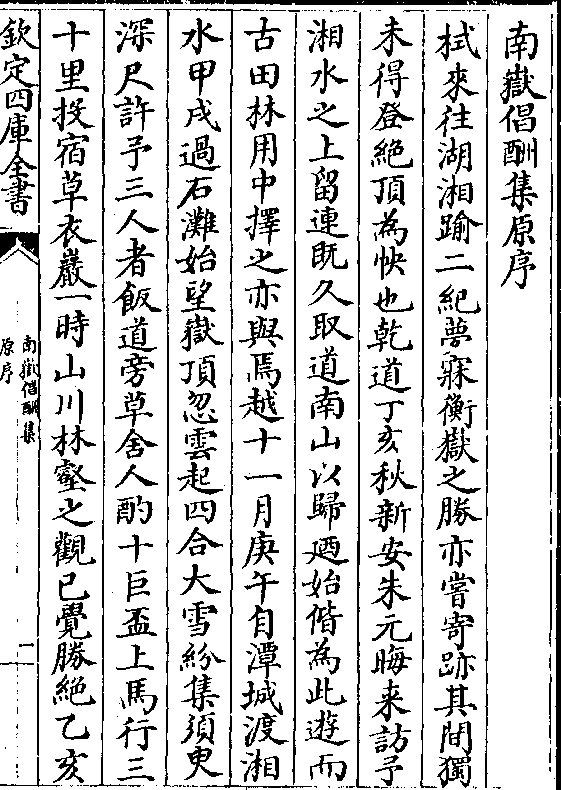 南嶽倡酬集原序
栻來往湖湘踰二紀夢寐衡嶽之勝亦嘗寄跡其間獨
未得登絶頂為怏也乾道丁亥秋新安朱元晦来訪予
湘水之上留連既久取道南山以歸廼始偕為此遊而
古田林用中擇之亦與焉越十一月庚午自潭城渡湘
水甲戌過石灘始望嶽頂忽雲起四合大雪紛集須臾
深尺許予三人者飯道旁草舍人酌十巨盃上馬行三
十里投宿草衣巖一時山川林壑之觀已覺勝絶乙亥
欽定四庫全書
南嶽倡酬集
原序
一